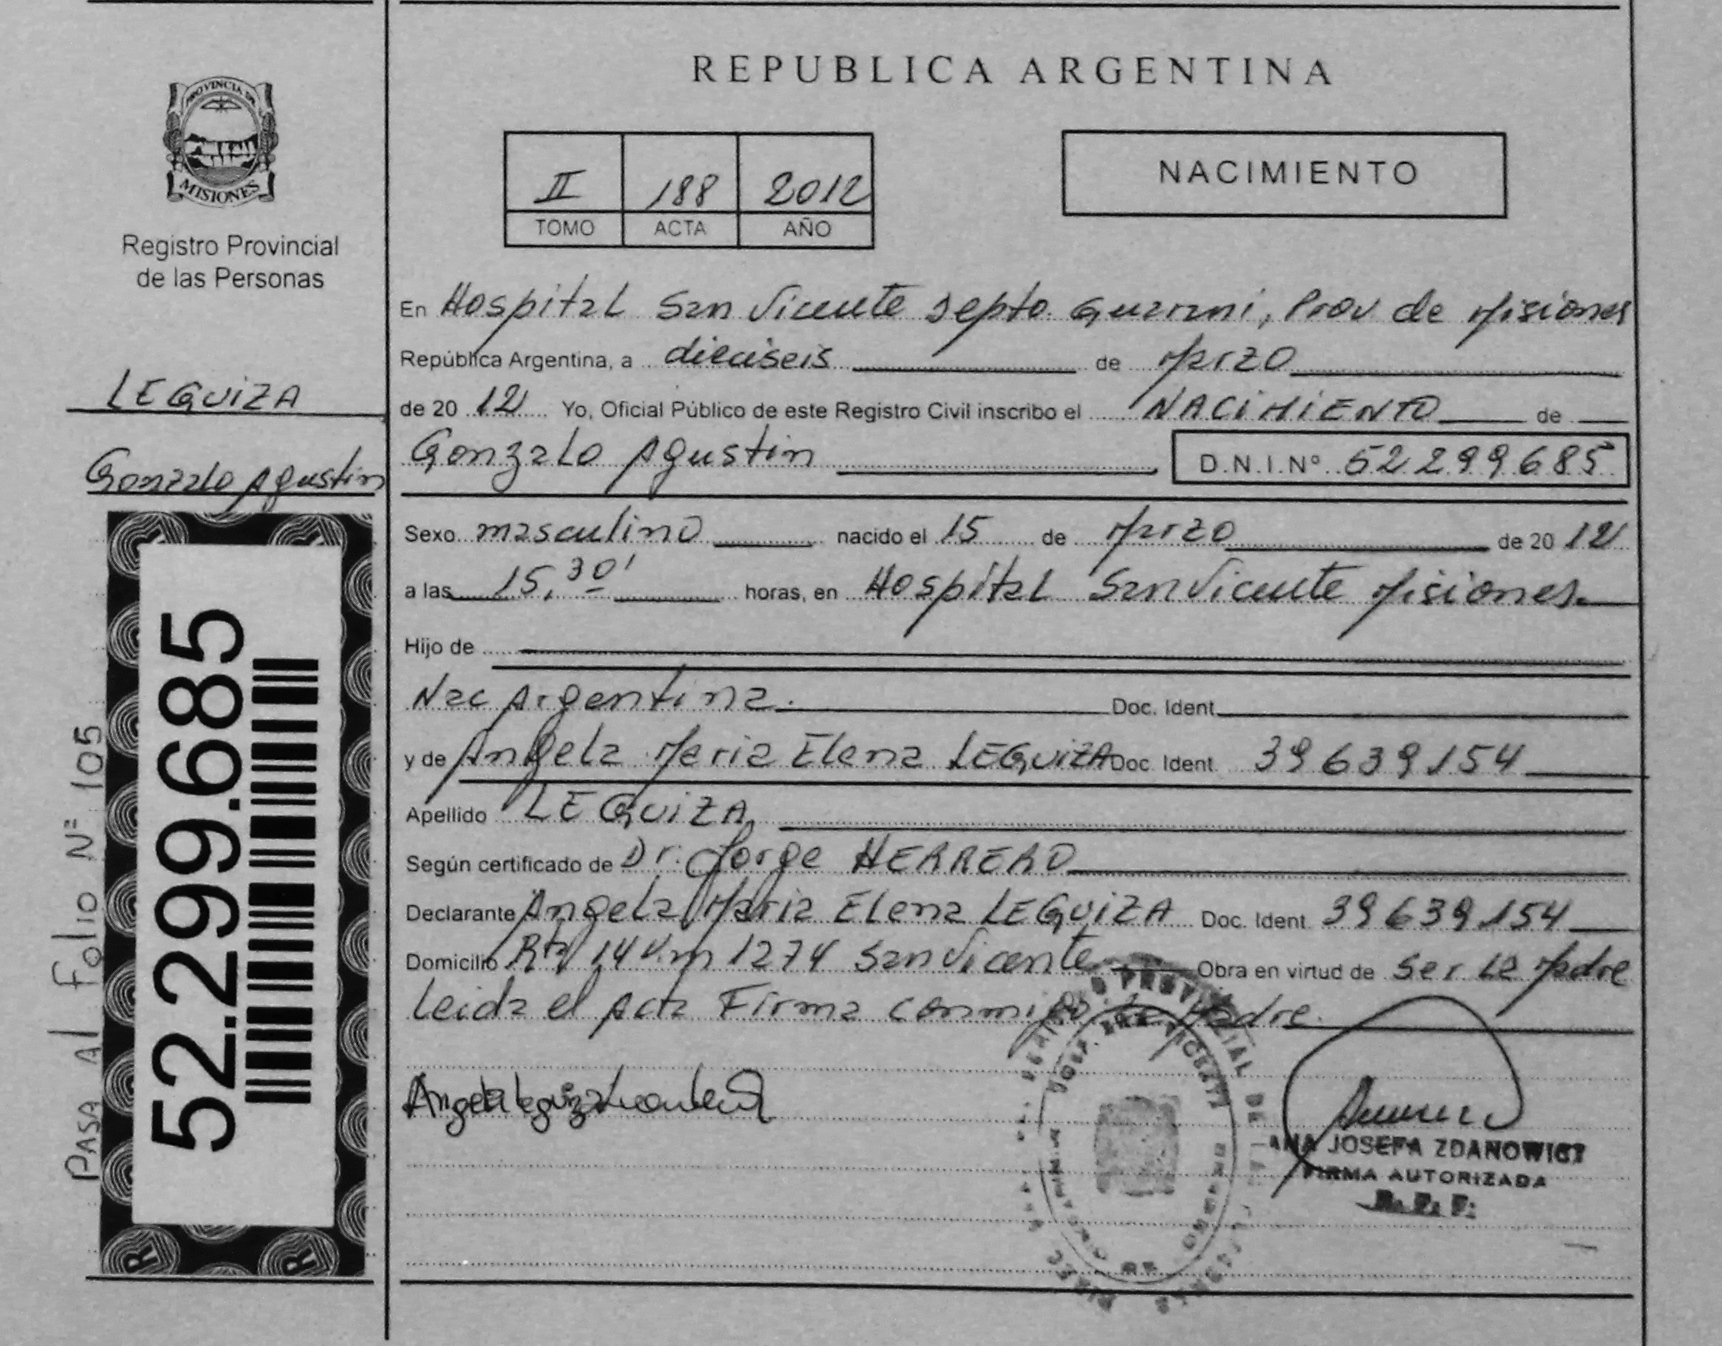 REPUBLICA ARGENTINA
PROVINCIA DE
MISIONES
Registro Provincial
de las Personas
II 188 2012
TOMO ACTA AÑO
NACIMIENTO
LEGUIZA
Gonzalo Agustin
52.299.685
PASA Al Folio Nº 105
En Hospital San Vicente Depto. Guarani, Prov de Misiones
República Argentina, a dieciseis de Marzo
de 20 12 Yo, Oficial Público de este Registro Civil inscribo el NACIMIENTO de
Gonzalo Agustin D.N.I.Nº 52299685
Sexo masculino nacido el 15 de Marzo de 20 12
a las 15,30' horas, en Hospital San Vicente Misiones.
Hijo de
Nac Argentina. Doc. Ident.
y de Angela Maria Elena LEGUIZA Doc. Ident. 39639154
Apellido LEGUIZA
Según certificado de Dr. Jorge HERRERO
Declarante Angela Maria Elena LEGUIZA Doc. Ident. 39639154
Domicilio Rta 14 Km 1274 San Vicente Obra en virtud de Ser La Madre
Leida el Acta Firma conmigo La Madre.
Angela Leguiza
ANA JOSEFA ZDANOWICZ
FIRMA AUTORIZADA